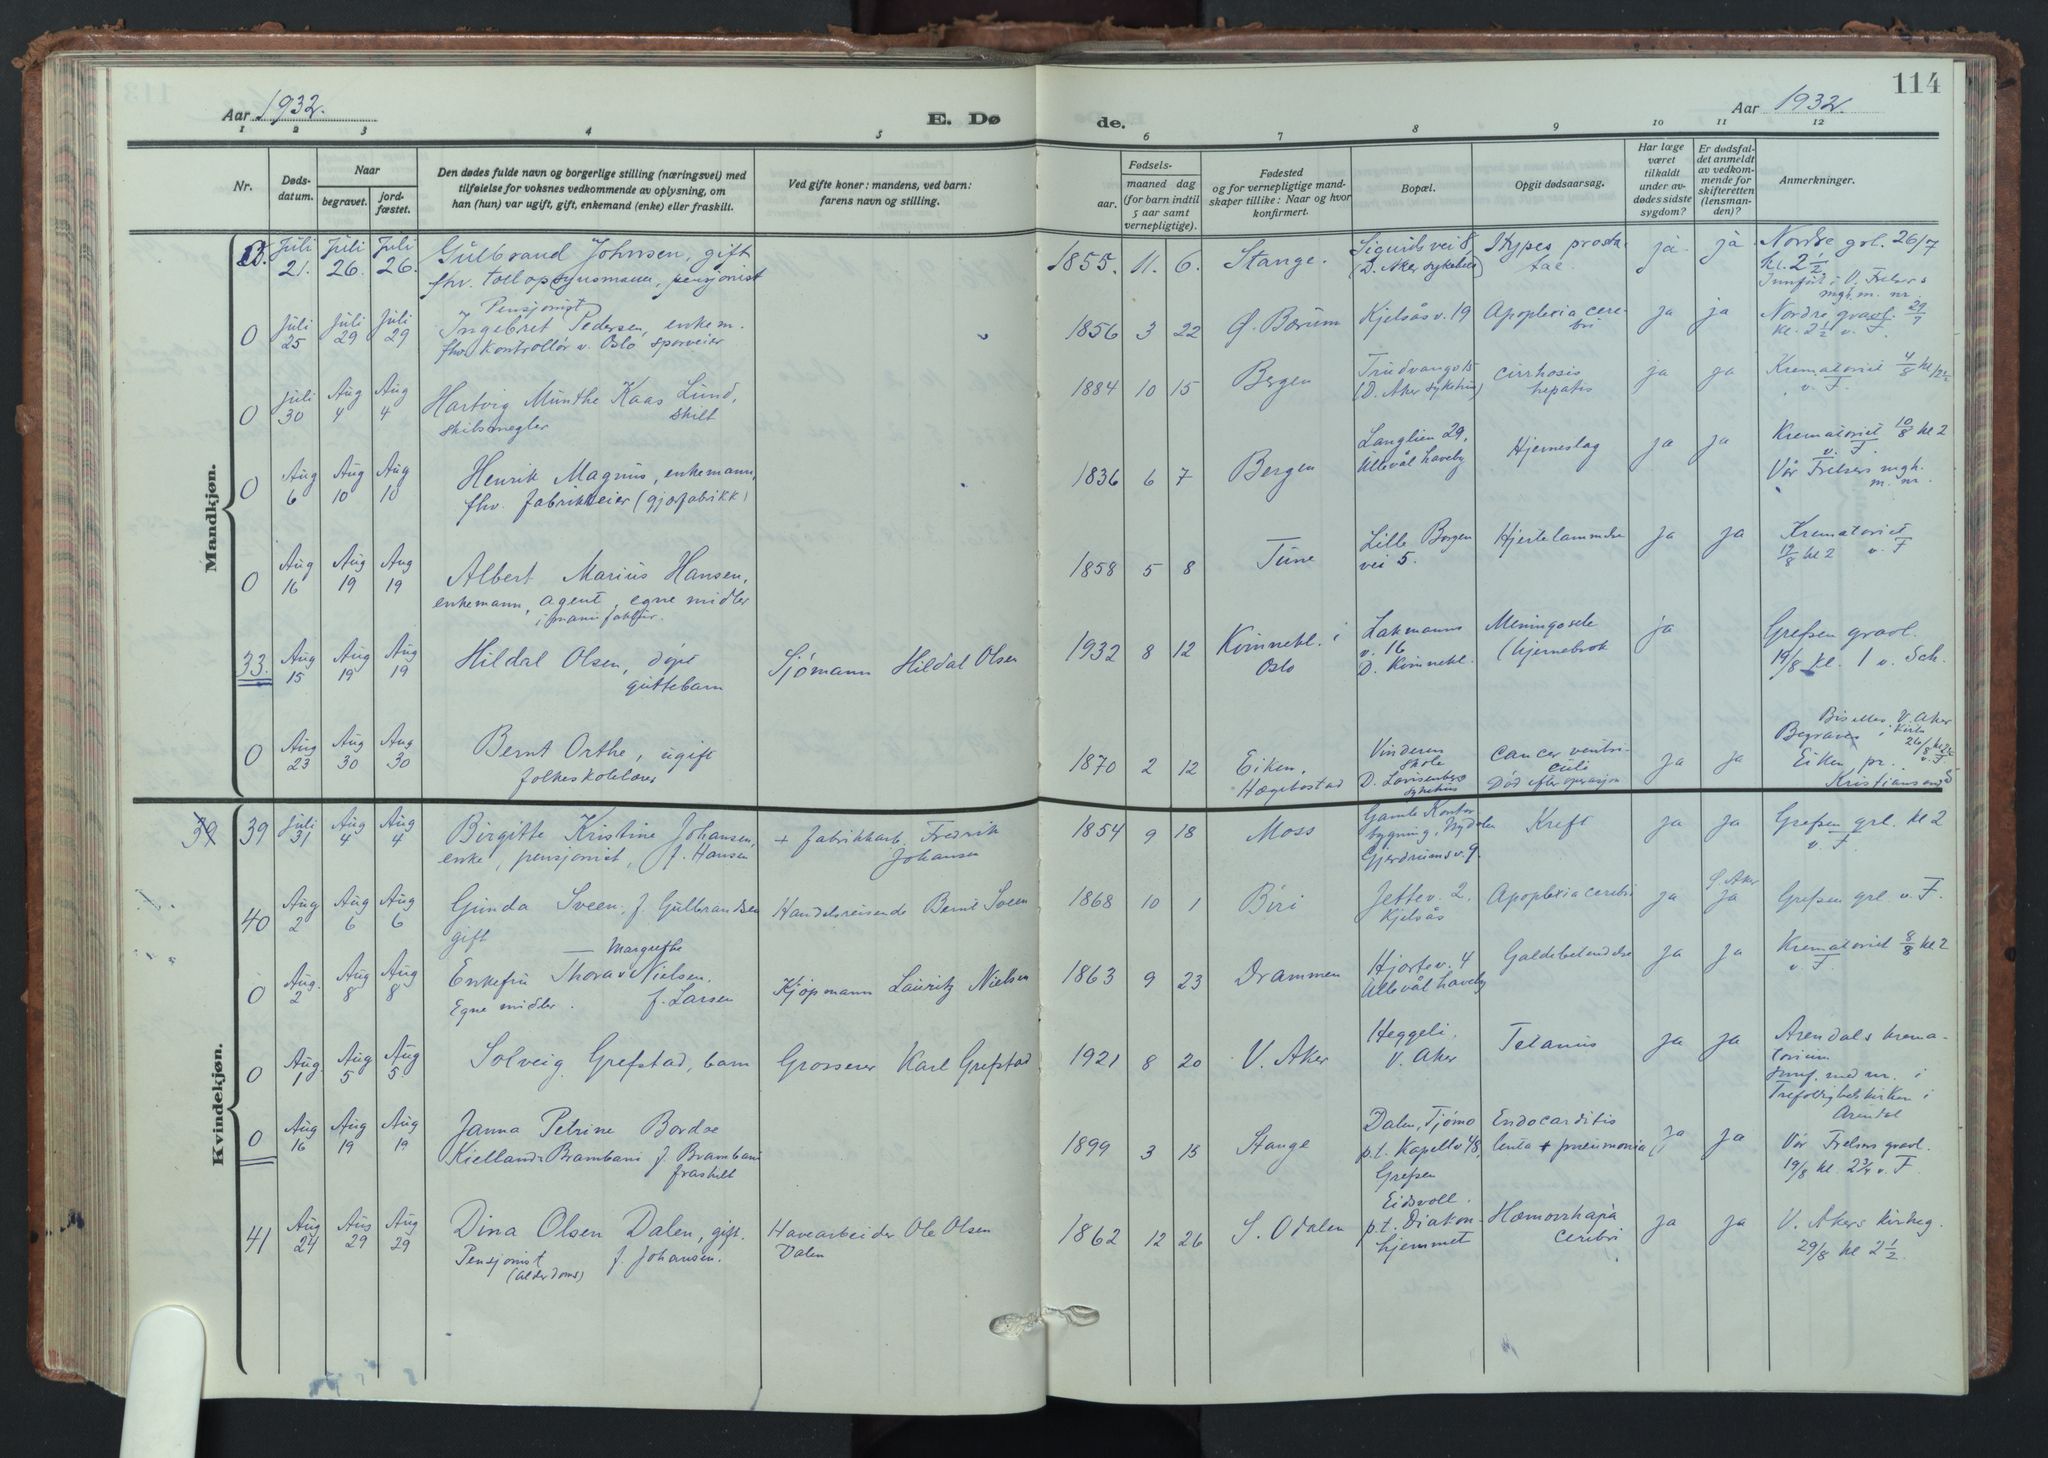 114
Aar 1932.
E. Døde.
Aar 1932.
1 2 3 4 5 6 7 8 9 10 11 12
Nr.
Døds-datum.
Naar
begravet.
jord-fæstet.
Den dødes fulde navn og borgerlige stilling (næringsvei) med
tilføielse for voksnes vedkommende av oplysning, om
han (hun) var ugift, gift, enkemand (enke) eller fraskilt.
Ved gifte koner: mandens, ved barn:
farens navn og stilling.
Fødsels-
aar.
maaned dag
(for barn indtil
5 aar samt
vernepligtige).
Fødested
og for vernepligtige mand-
skaper tillike: Naar og hvor
konfirmert.
Bopæl.
Opgit dødsaarsag.
Har læge
været
tilkaldt
under av-
dødes sidste
sygdom?
Er dødsfal-
det anmeldt
av vedkom-
mende for
skifteretten
(lensman-
den)?
Anmerkninger.
Mandkjøn.
Juli 21. Juli 26. Juli 26. Gulbrand Johnsen, gift
fhv. tollopsynsmann, pensjonist
1855. 11. 6. Stange. Sigurds vei 8
(D. Aker sykehus) prostatae ja ja Nordre grl. 26/7
kl. 2 1/2
0 Juli 25 Juli 29 Juli 29 Pensjonist
Ingebret Pedersen, enkem.
fhv. kontrollør v. Oslo sporveier
1856 3 22 Ø. Bærum Kjelsåsv. 19 Apoplexia cerebri ja ja Nordre gravl. 29/7
kl. 2 1/2 v. F.
0 Juli 30 Aug 4 Aug 4 Hartvig Munthe Kaas Lund,
skilt
skibsmegler
1884 10 15 Bergen
(D. Aker sykehus) cirrhosis
hepatis ja ja Krematoriet 4/8
v. F.
0 Aug 6 Aug 10 Aug 10 Henrik Magnus, enkemann,
fhv. fabrikkeier
1836 6 7 Bergen Langlien 29,
Ullevål haveby Hjerneslag ja ja Krematoriet 10/8 kl 2
v. F.
Vår Frelsers mgh.
m. nr.
0 Aug 16 Aug 19 Aug 19 Albert Marius Hansen,
enkemann, agent, egne midler
i manufaktur.
1858 5 8 Tune Lille Borgen
vei 5. Hjertelammelse ja ja Krematoriet
19/8 kl 2 v. F
33. Aug 15 Aug 19 Aug 19 Hildal Olsen, døpt
guttebarn
Sjømann Hildal Olsen
1932 8 12 Kvinnekl. i
Oslo
v. 16
D. Kvinnekl. Meningocele
(hjernebrok ja Grefsen gravl.
19/8 kl. 1 v. Sch.
0 Aug 23 Aug 30 Aug 30 Bernt Orthe, ugift
folkeskolelærer
1870 2 12 Eiken,
Hægebostad Vinderen
skole
D. Lovisenberg
sykehus cancer ventri-
culi
Død efter operasjon ja ja V. Aker
Kirke 26/8
Begraves i
Eiken pr.
Kristiansand S
Kvindekjøn.
39 39 Juli 31 Aug 4 Aug 4 Birgitte Kristine Johansen,
enke, pensjonist, f. Hansen
+ fabrikkarb. Fredrik
Johansen
1854 9 18 Moss Gamle Kontor
bygning, Nydalen
Gjerdrumsv. 9. Kreft ja ja Grefsen grl. kl 2
v. F.
40 Aug 2 Aug 6 Aug 6 Gunda Sveen, f. Gulbrandsen
gift
Handelsreisende Bernt Sveen
1868 10 1 Biri Jettev. 2,
Kjelsås Apoplexia cerebri ja S. Aker
ja Grefsen grl. v. F.
0 Aug. 2 Aug 8 Aug 8 Margrethe
Enkefru Thora Nielsen,
Egne midler. f. Larsen
Kjøpmann Lauritz Nielsen
1863 9 23 Drammen Hjortev. 4
Ullevål haveby Galdebetendelse ja ja Krematoriet 8/8 kl 2
v. F.
0 Aug. 1 Aug 5 Aug 5 Solveig Grefstad, barn
Grosserer Karl Grefstad
1921 8 20 V. Aker Heggeli,
V. Aker Tetanus ja ja Arendals krema-
torium
nr. i
Trefoldighetskirken i
Arendal
0 Aug 16 Aug 19 Aug 19 Janna Petrine Bordoe
Kielland-Brambani f. Brambani
fraskilt
1899 3 15 Stange Dalen, Tjømo
p.t. Kapellv 48,
Grefsen Endocarditis
lenta + pneumonia ja ja Vår Frelsers gravl.
19/8 kl. 2 3/4 v. F.
41 Aug 24 Aug 29 Aug 29 Dina Olsen Dalen, gift.
Pensjonist f. Johansen.
(Alderdoms)
Havearbeider Ole Olsen
Dalen
1862 12 26 S. Odalen Eidsvoll.
p.t. Diakon-
hjemmet Hæmorrhagia
cerebri ja ja V. Akers kirkeg.
29/8 kl 2 1/2.